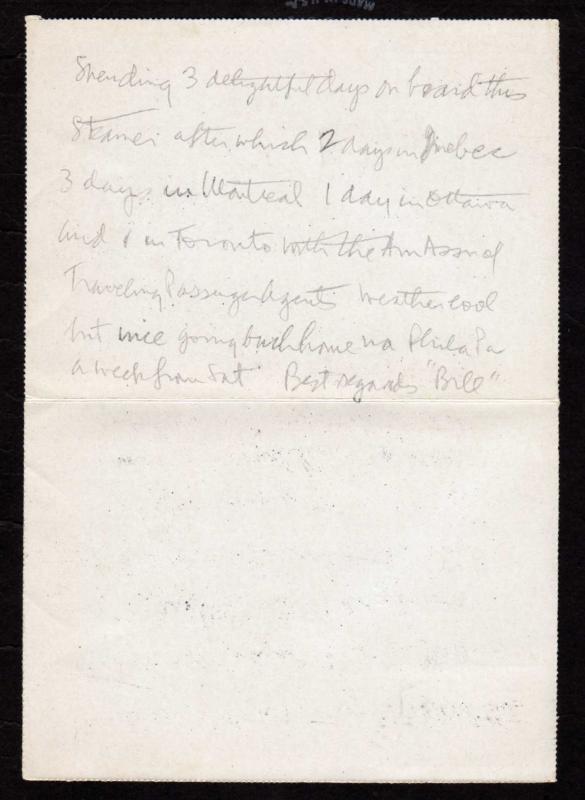 MADE IN U.S.A.
Spending 3 delightful days on board this
Steamer after which 2 days in Quebec
3 days in Montreal 1 day in Ottawa
and 1 in Toronto with the Am Assn of
Traveling Passenger Agents Weather cool
but nice going back home via Phila Pa
a week from Sat Best regards "Bill"